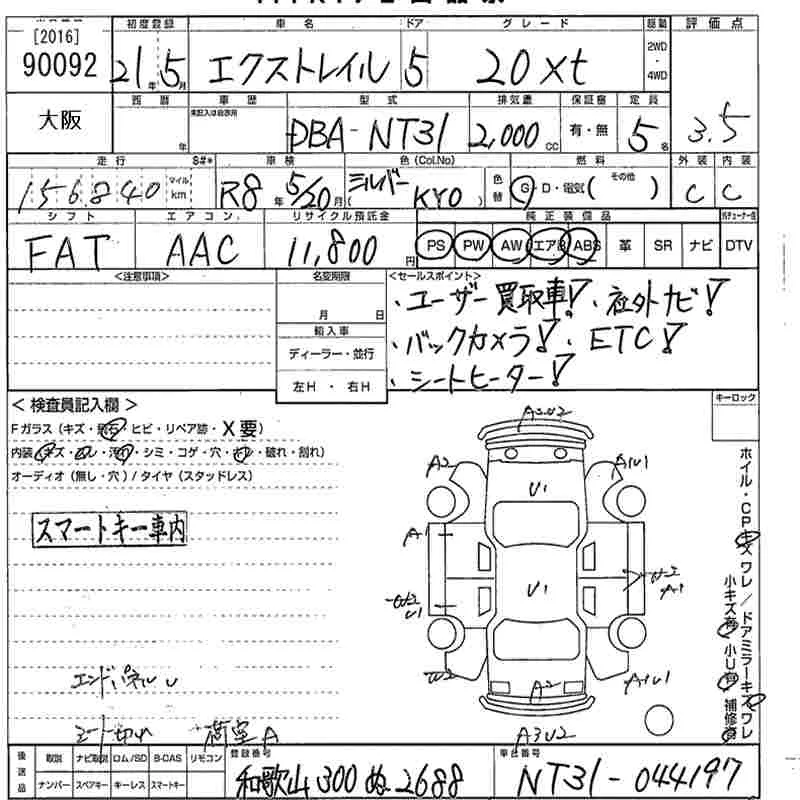 [2016]
90092
初度登録 車名 ドア グレード 駆動 評価点
21年 5月 エクストレイル 5 20xt 2WD・4WD
大阪
西暦 車歴 型式 排気量 保証書 定員
年 未記入は自家用 DBA-NT31 2,000cc 有・無 5名 3.5
走行 S#* 車検 色(Col.No) 燃料 外装 内装
156840 マイル km R8年 5/20月 シルバー KYO 色替 G・D・電気( その他 ) C C
シフト エアコン リサイクル預託金 純正装備品
FAT AAC 11,800円 PS PW AW エアB ABS 革 SR ナビ DTV
<注意事項> 名変期限 <セールスポイント>
月 日
・ユーザー買取車! ・社外ナビ!
輸入車
・バックカメラ! ・ETC!
ディーラー・並行
・シートヒーター!
左H ・ 右H
キーロック
<検査員記入欄>
Fガラス(キズ・飛石・ヒビ・リペア跡・X要)
内装(キズ・スレ・汚れ・シミ・コゲ・穴・キレ・破れ・割れ)
オーディオ(無し・穴)/タイヤ(スタッドレス)
スマートキー車内
A3U2
A2
A1U1
U1
A1
U1
U2
A1
U2
U1
U2
A2
A1U1
A3U2
ホイル・CPキズ ワレ/ドアミラーキズ ワレ
小キズ有 小U有 補修跡
エンドパネルU
シート切れ 荷室A
後送品 取説 ナビ取説 ロム/SD B-CAS リモコン
ナンバー スペアキー キーレス スマートキー
登録番号 車台番号
和歌山 300 ぬ 2688 NT31-044197